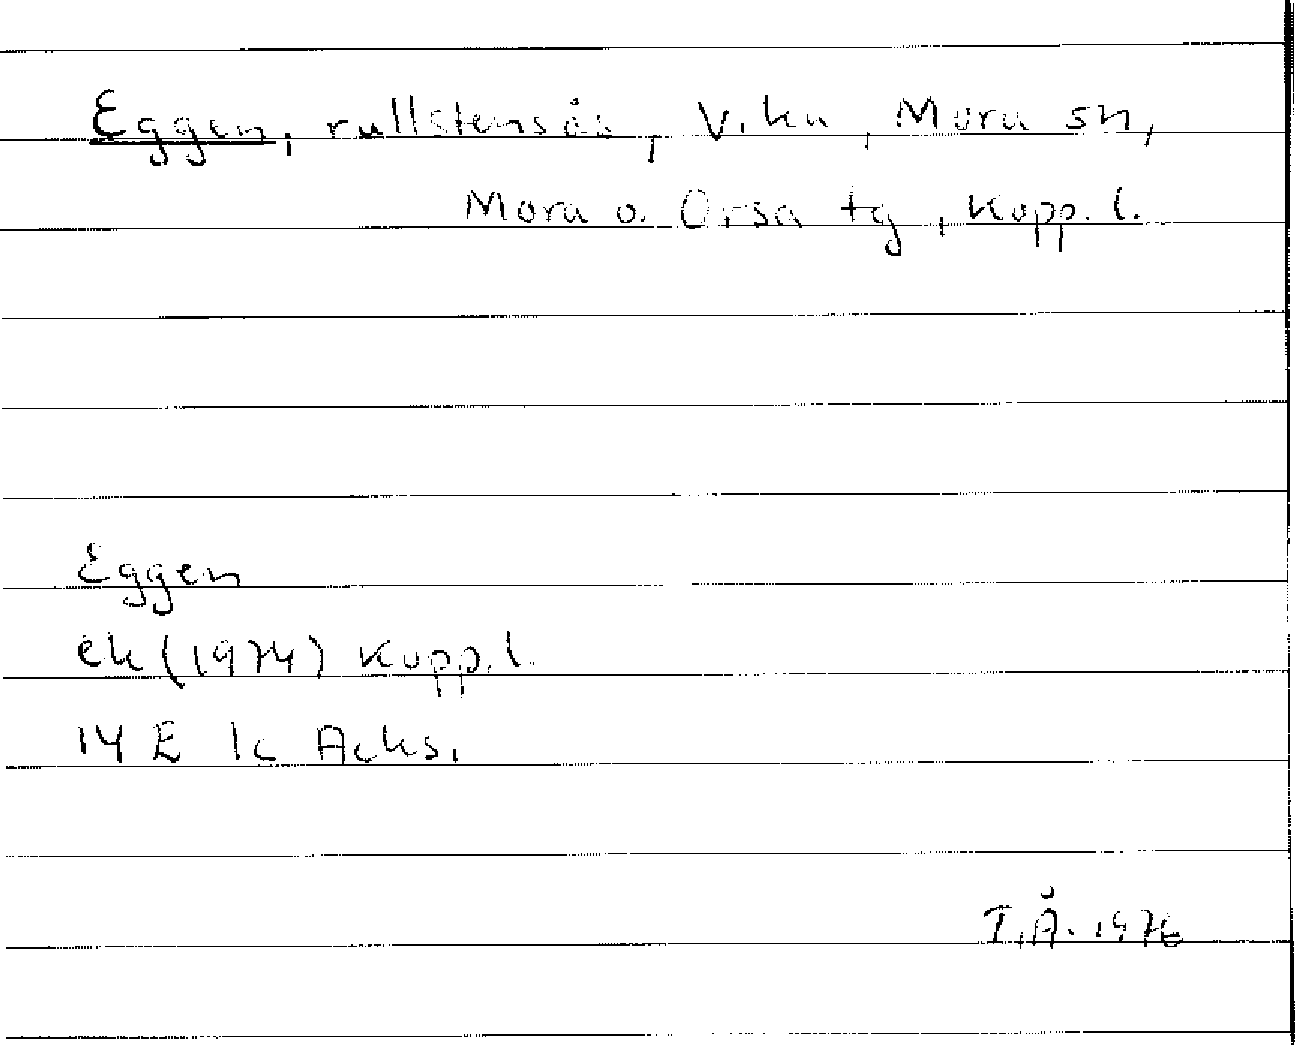 Eggen, rullstensås, Vika, Mora sn,
Mora o. Orsa tg, Kopp. l.
Eggen
ek (1974) Kopp. l.
14 E 1c Acks.
I.Å. 1976